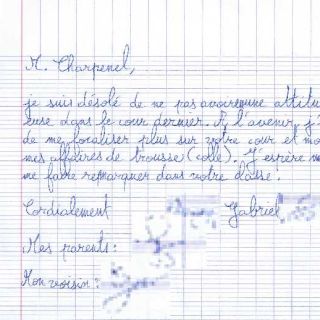 M. Charpenel,
je suis désolé de ne pas avoir eu une attitu
euse dans le cour dernier. A l'avenir, j'
de me focaliser plus sur votre cour et mo
mes affaires de trousse (colle). J'espère
me faire remarquer dans votre classe!
Cordialement Gabriel
Mes parents:
Mon voisin: